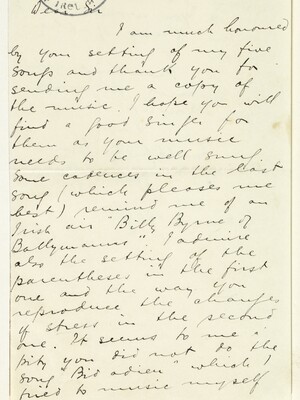 Dear Sir
I am much honoured
by your setting of my five
songs and thank you for
sending me a copy of
the music. I hope you will
find a good singer for
them as your music
needs to be well sung.
Some cadences in the last
song (which pleases me
best) remind me of an
Irish air "Billy Byrne of
Ballymanus". I admire
also the setting of the
parentheses in the first
one and the way you
reproduce the changes
of stress in the second
one. It seems to me a
pity you did not do the
song "Bid adieu" which I
tried to music myself